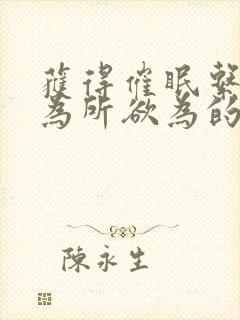 獲得催眠繫
為所欲為的
陳永生